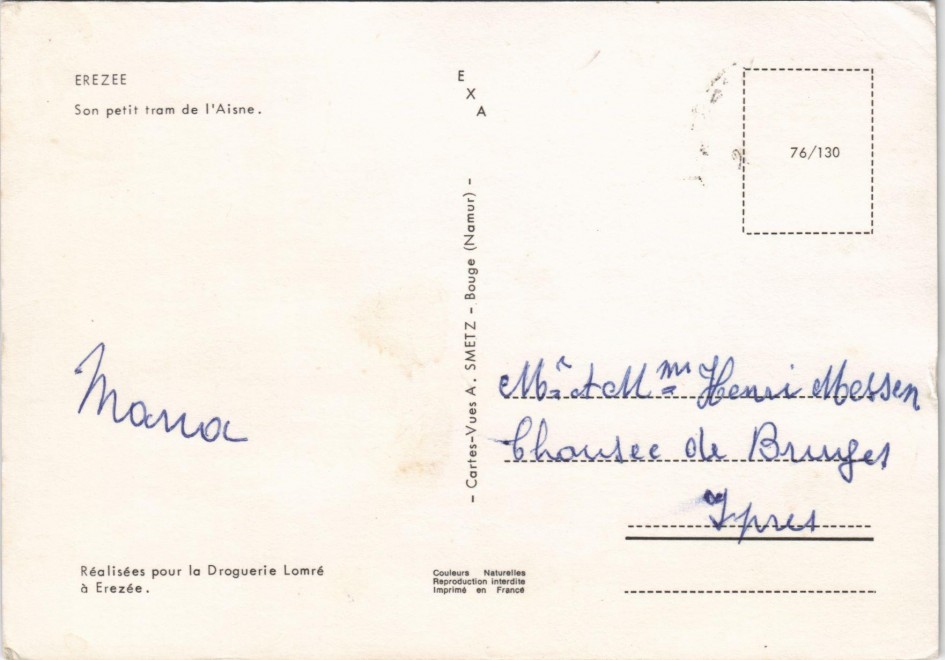 EREZEE
Son petit tram de l'Aisne.
EXA
76/130
- Cartes-Vues A. SMETZ - Bouge (Namur) -
Maria
Mr & Mme Henri Messen
Chousee de Bruges
Ypres
Réalisées pour la Droguerie Lomré
à Erezée.
Couleurs Naturelles
Reproduction interdite
Imprimé en France